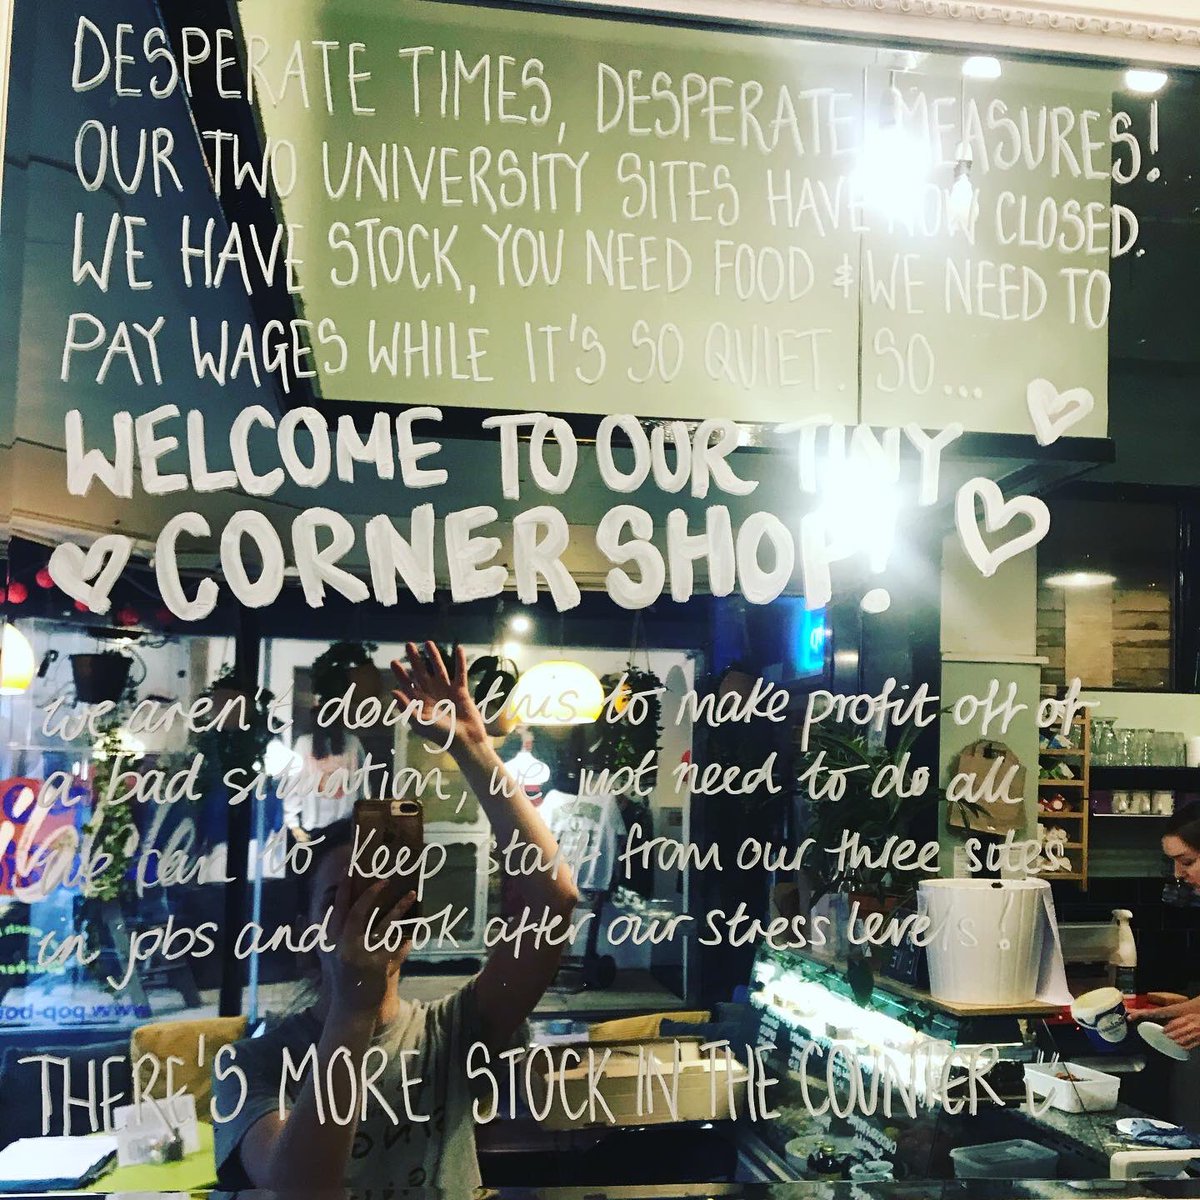 DESPERATE TIMES, DESPERATE MEASURES!
OUR TWO UNIVERSITY SITES HAVE NOW CLOSED.
WE HAVE STOCK, YOU NEED FOOD & WE NEED TO
PAY WAGES WHILE IT'S SO QUIET. SO...
WELCOME TO OUR TINY
CORNER SHOP!
we aren't doing this to make profit off of
a bad situation, we just need to do all
we can to keep staff from our three sites
in jobs and look after our stress levels!
THERE'S MORE STOCK IN THE COUNTER